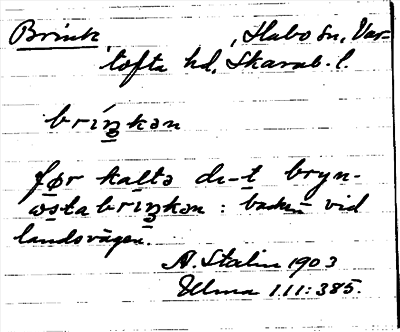 Brink, , Habo sn, Var-
tofta hd, Skarab. l.
bríŋkən
før kaltə de-t bryn-
østabriŋkən : backen vid
landsvägen.
A. Stalin 1903
Ulma 111:385.